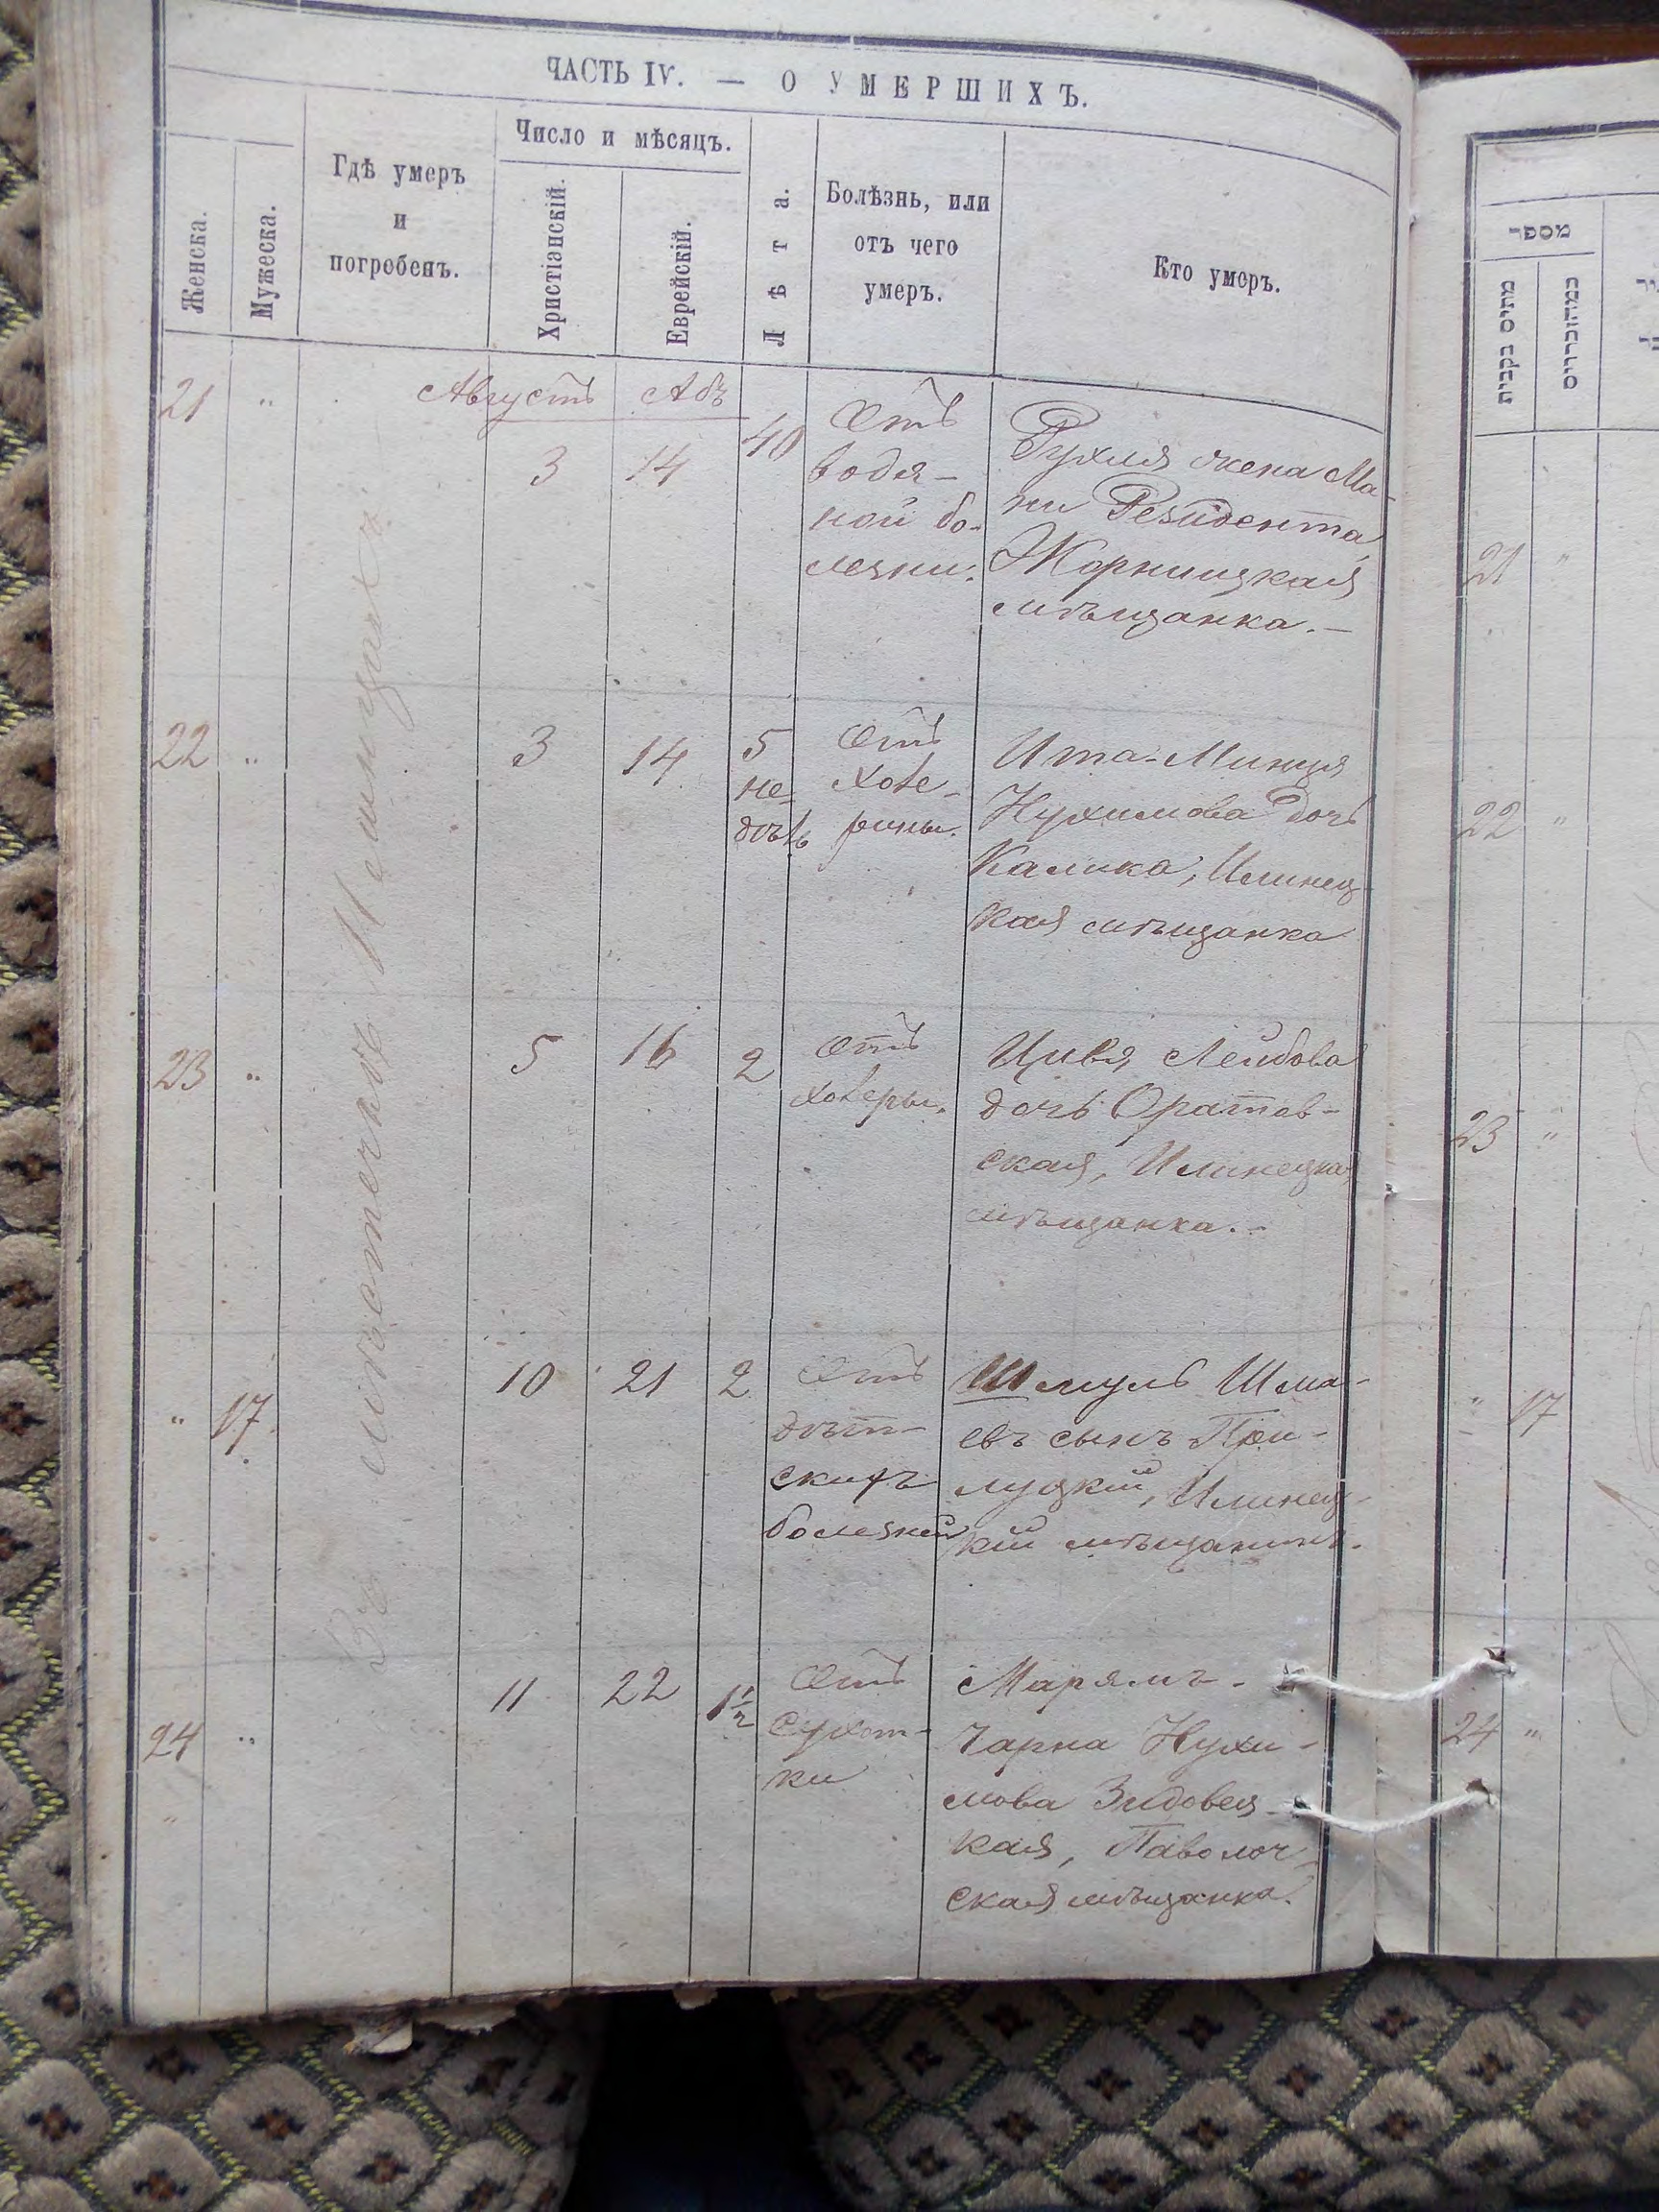 ЧАСТЬ IV. — О УМЕРШИХЪ.
Женска.
Мужеска.
Гдѣ умеръ
и
погребенъ.
Число и мѣсяцъ.
Христіанскій.
Еврейскій.
Лѣта.
Болѣзнь, или
отъ чего
умеръ.
Кто умеръ.
Августъ Абъ
Въ мѣстечкѣ Илинцахъ
21 " 3 14 40
Отъ
водя-
ной бо-
лезни.
Рухля жена Ма-
ни Резидента,
Жорницкая
мѣщанка.—
22 " 3 14
5
не-
дѣль
Отъ
холе-
рины.
Ита-Минця
Нухимова дочь
Калика, Илинец-
кая мѣщанка
23 " 5 16 2
Отъ
холеры.
Цивя Лейбова
дочь Оратов-
ская, Илинецкая
мѣщанка.—
" 17 10 21 2
Отъ
дѣт-
скихъ
болезней
Шмуль Шма-
евъ сынъ При-
луцкий, Илинец-
кий мѣщанинъ.
24 " 11 22 1½
Отъ
Сухот-
ки
Марямъ-
Чарна Нухи-
мова Зидовец-
кая, Паволоч-
ская мѣщанка.
מספר
נקבות
21 "
22 "
23 "
" 17
24 "